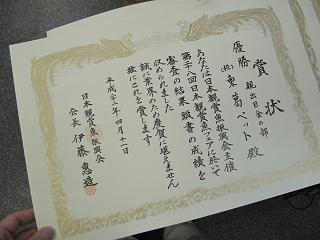 賞状
優勝 親出目金の部
㈱東葛ペット殿
あなたは日本観賞魚振興会主催
第二十八回日本観賞魚フェアに於いて
審査の結果頭書の成績を
収められました
誠に業界のため慶賀に堪えません
茲にこれを賞します
平成二十二年四月十一日
日本観賞魚振興会
会長 伊藤恵造